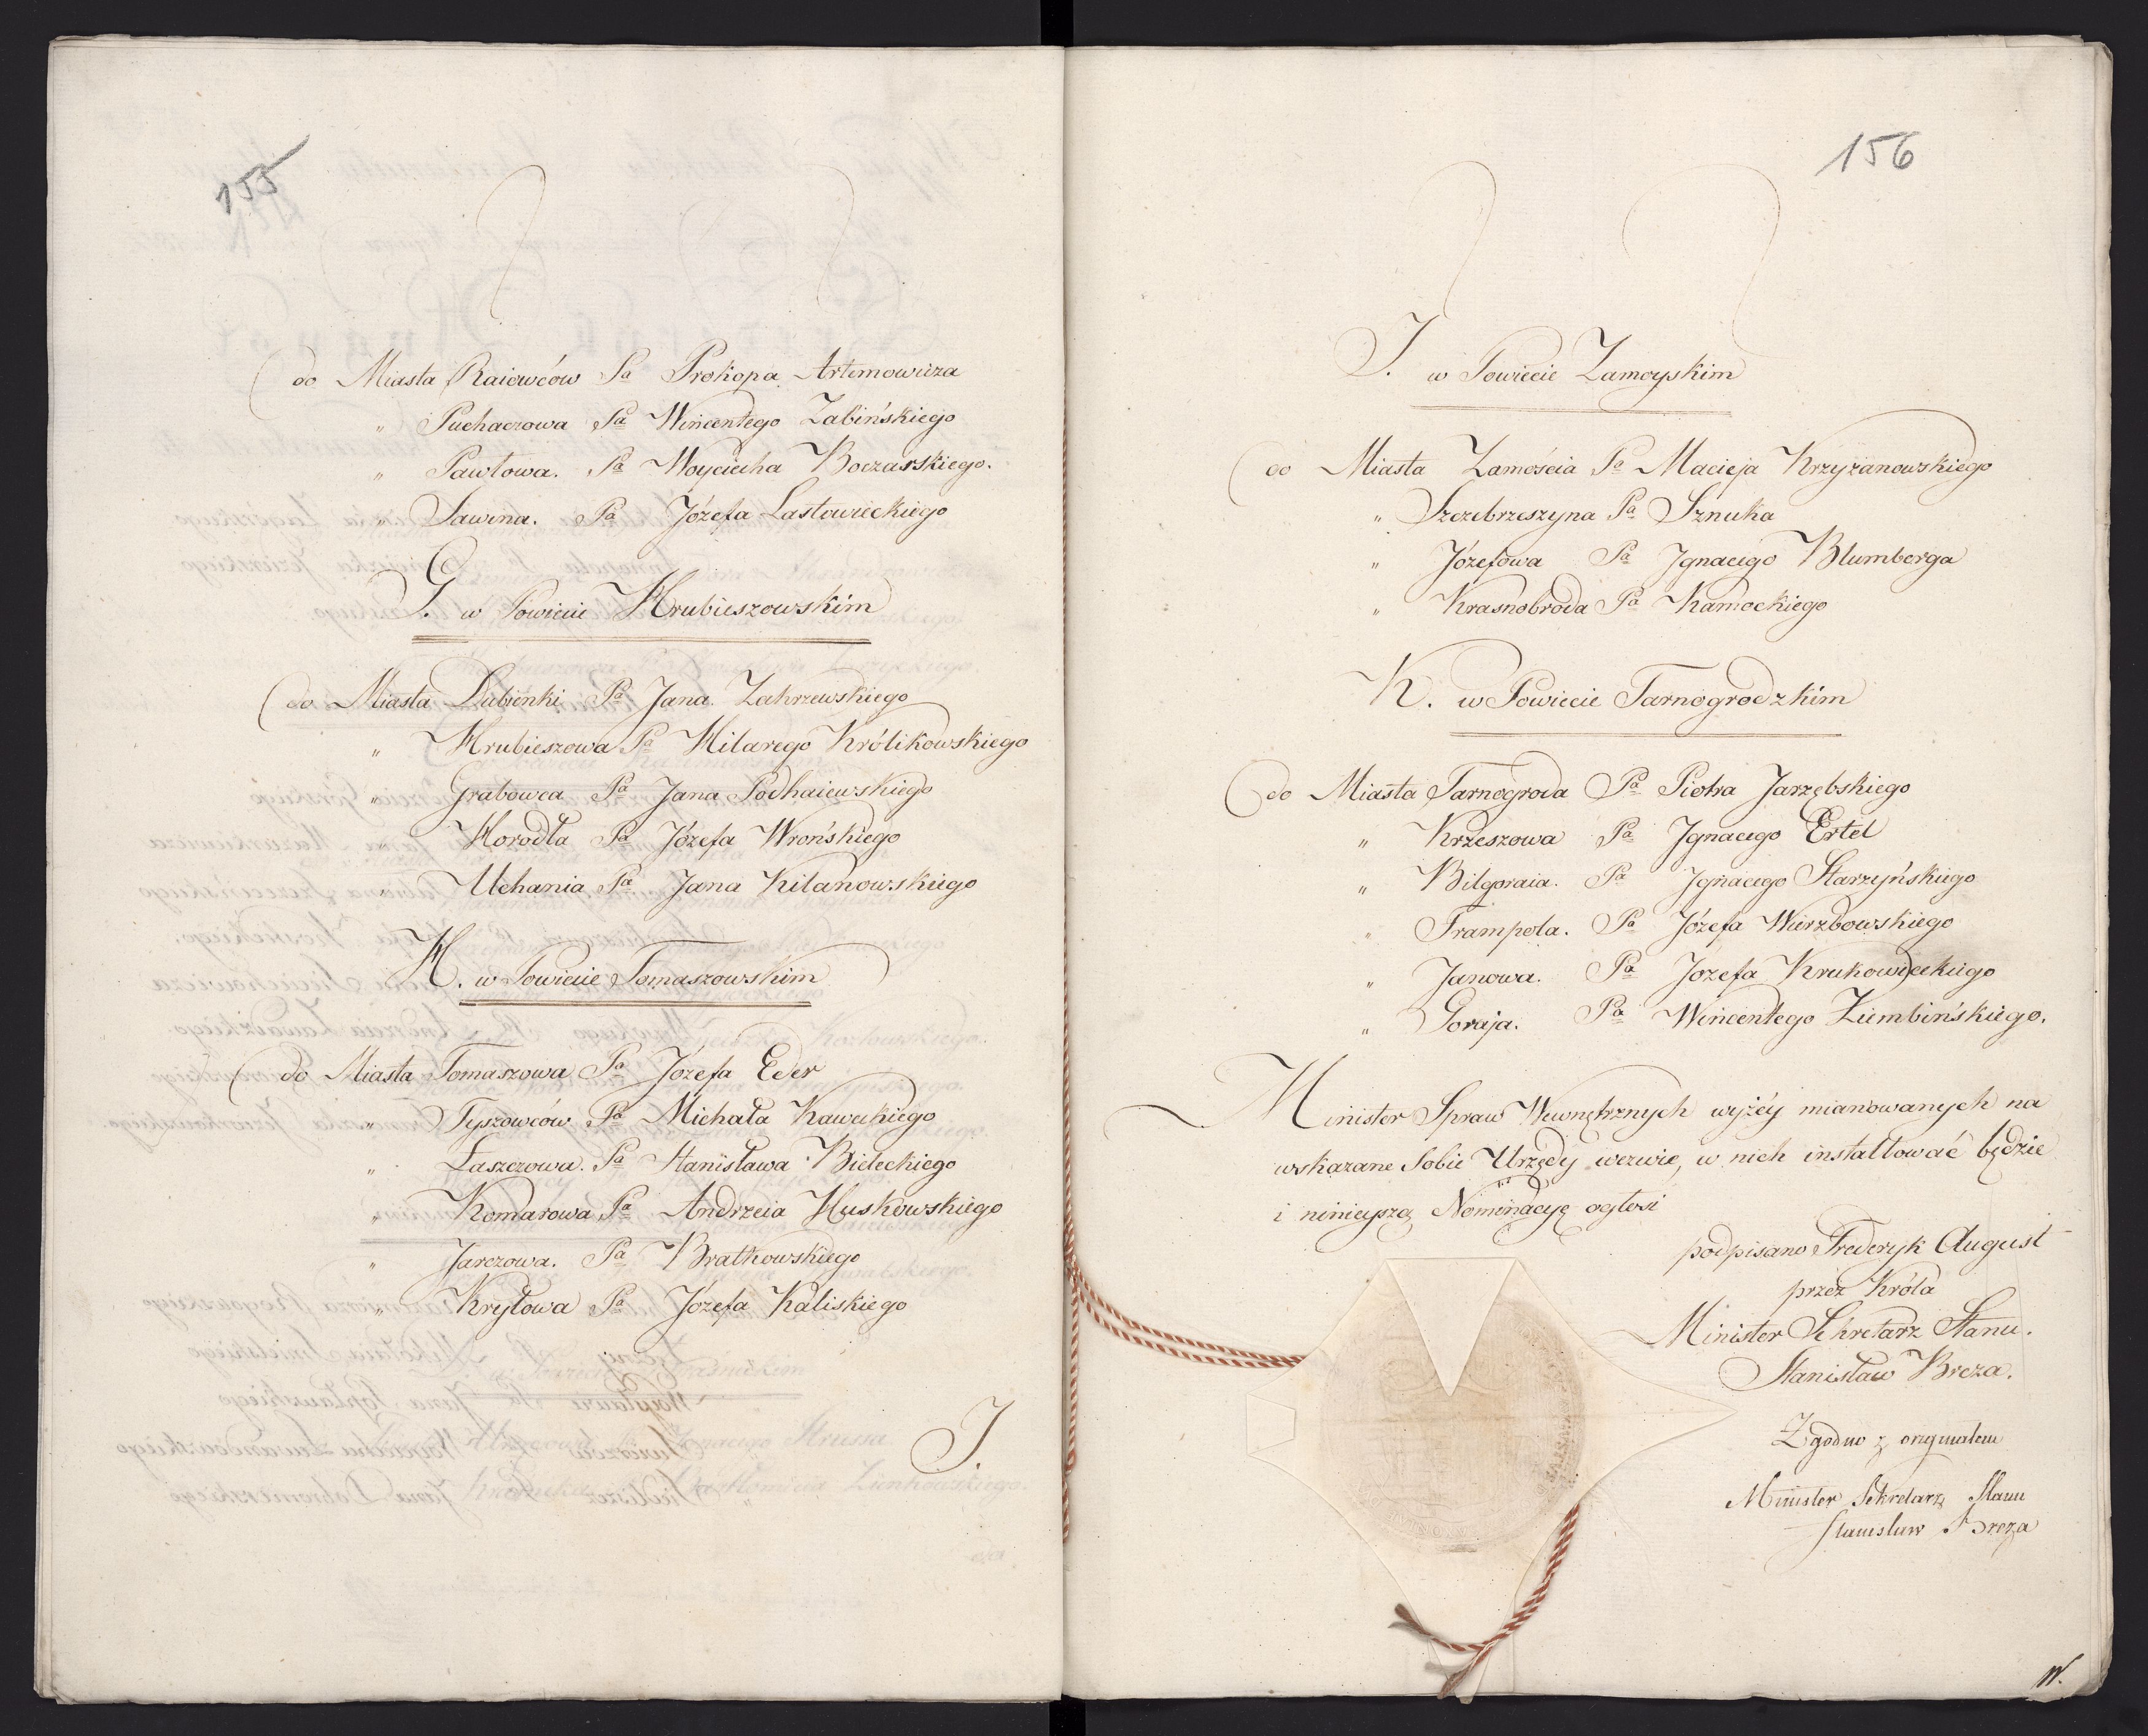 155
do Miasta Raiowców Pa Prokopa Artemowicza
" Puchaczowa Pa Wincentego Zabińskiego
" Pawłowa. Pa Woyciecha Boczarskiego.
" Sawina. Pa Józefa Lastowieckiego
G. w Powiecie Hrubieszowskim
do Miasta Dubienki Pa Jana Zakrzewskiego
" Hrubieszowa Pa Hilarego Królikowskiego
" Grabowca Pa Jana Podhaiewskiego
" Horodła Pa Józefa Wrońskiego
" Uchania Pa Jana Kilanowskiego
H. w Powiecie Tomaszowskim
do Miasta Tomaszowa Pa Józefa Eder
" Tyszowców Pa Michała Kaweckiego
" Łaszczowa. Pa Stanisława Bieleckiego
" Komarowa Pa Andrzeia Huskowskiego
" Jarczowa. Pa Bratkowskiego
" Kryłowa Pa Józefa Kaliskiego
J.
156
J. w Powiecie Zamoyskim
do Miasta Zamościa Pa Macieja Krzyżanowskiego
" Szczebrzeszyna Pa Sznuka
" Józefowa Pa Jgnacego Blumberga
" Krasnobroda Pa Kamockiego
K. w Powiecie Tarnogrodzkim
do Miasta Tarnogroda Pa Piotra Jarzębskiego
" Krzeszowa Pa Jgnacego Ertel
" Bilgoraia. Pa Jgnacego Starzyńskiego
" Frampola. Pa Józefa Wierzbowskiego
" Janowa. Pa Jozefa Krukowieckiego
" Goraja. Pa Wincentego Ziembińskiego.
Minister Spraw Wewnętrznych wyżéy mianowanych na
wskazane Sobie Urzędy wezwie, w nich installować będzie
i ninieyszą Nominacyę ogłosi
podpisano Frederyk August
przez Króla
Minister Sekretarz Stanu.
Stanisław Breza.
Zgodno z orginałem
Minister Sekretarz Stanu
Stanisław Breza
W.